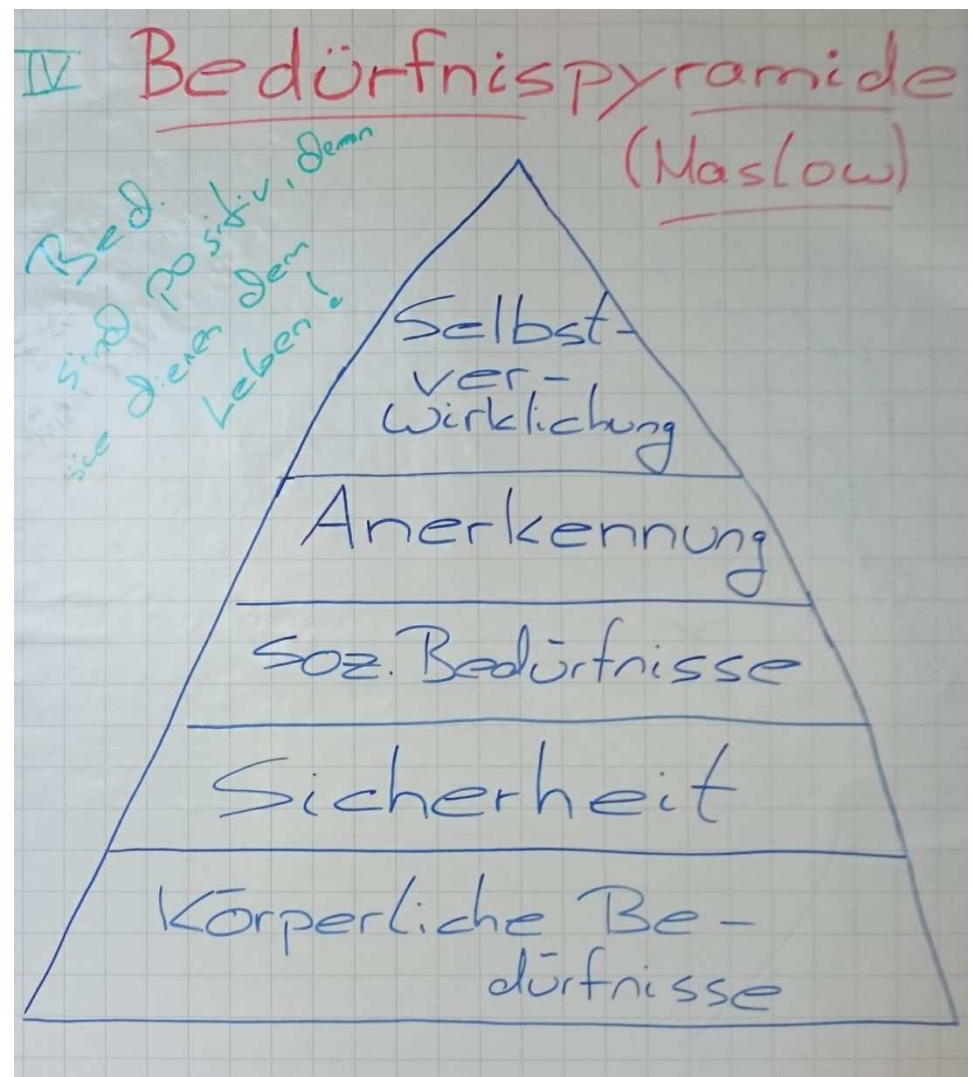 IV Bedürfnispyramide
(Maslow)
Bed.
sind positiv, denn
sie dienen dem
Leben!
Selbst-
ver-
wirklichung
Anerkennung
Soz. Bedürfnisse
Sicherheit
Körperliche Be-
dürfnisse